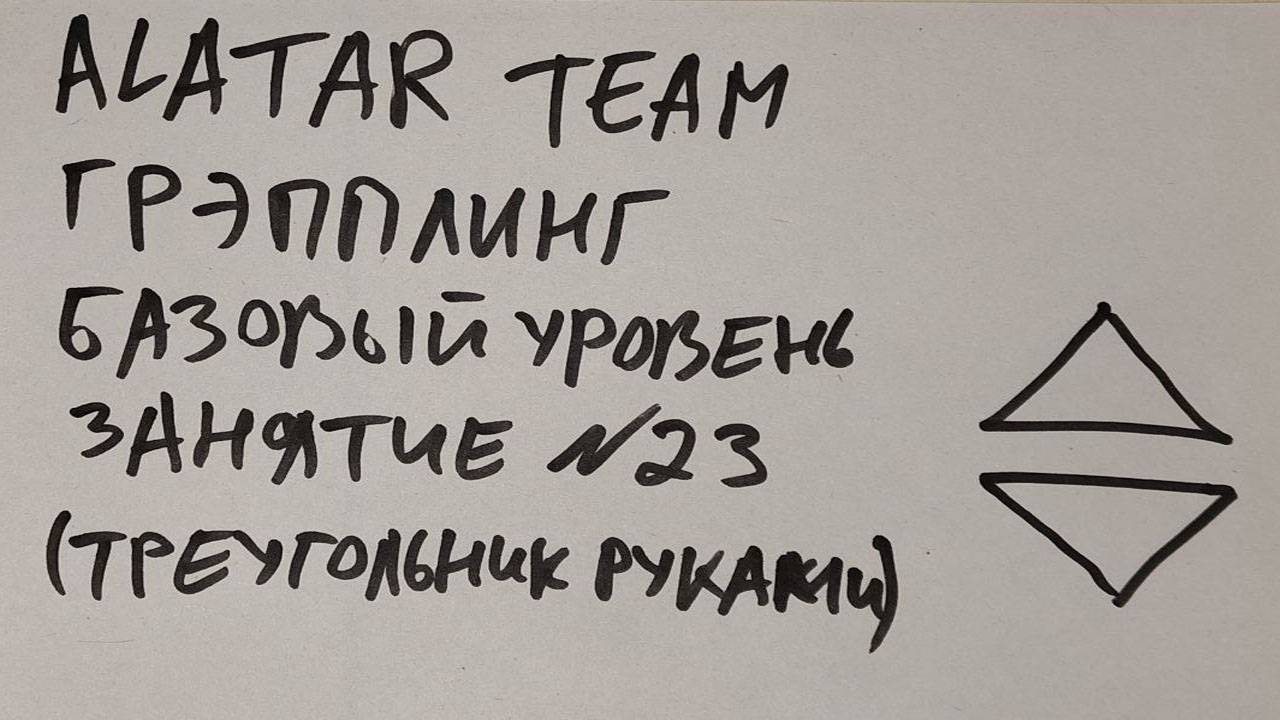 ALATAR TEAM
ГРЭППЛИНГ
БАЗОВЫЙ УРОВЕНЬ
ЗАНЯТИЕ N23
(ТРЕУГОЛЬНИК РУКАМИ)